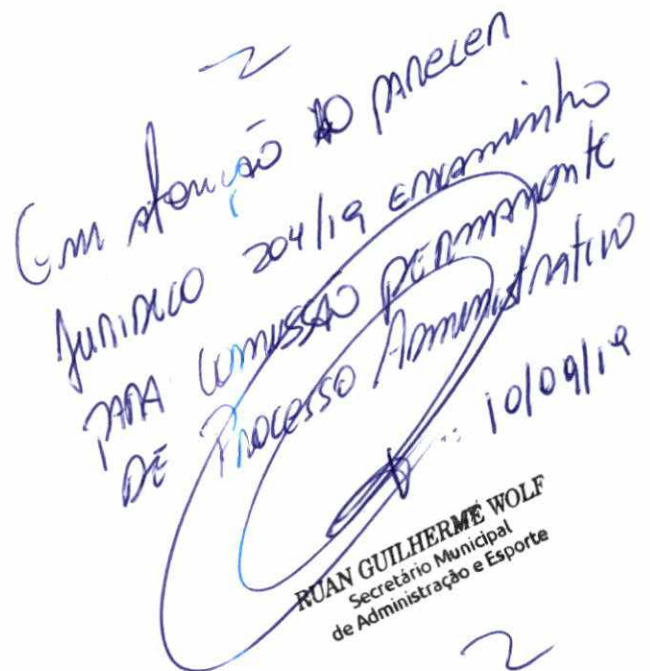 Em atenção ao parecer
Jurídico 204/19 encaminho
para comissão permanente
de Processo Administrativo
10/09/19
RUAN GUILHERME WOLF
Secretário Municipal
de Administração e Esporte